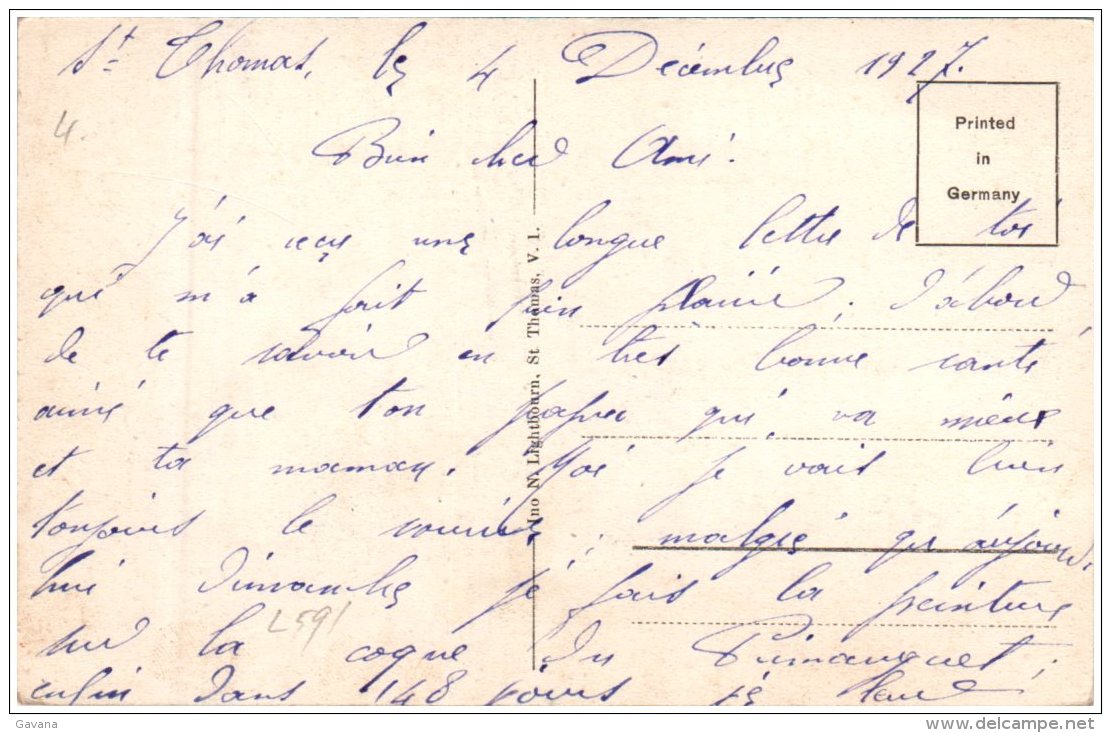 St Thomas, le 4 Décembre 1927.
4.
Printed
in
Germany
Bien cher Ami.
J'ai reçu une longue lettre de toi
qui m'a fait bien plaisir ; d'abord
de te savoir en très bonne santé,
ainsi que ton papa qui va mieux
et ta maman. Moi je vais bien
toujours le sourire, malgré qu'aujourd'
hui dimanche je fais la peinture
L591
sur la coque du Primauguet ;
enfin dans 148 jours je
Jno N. Lightbourn, St Thomas, V. I.
Gavana
delcampe.net